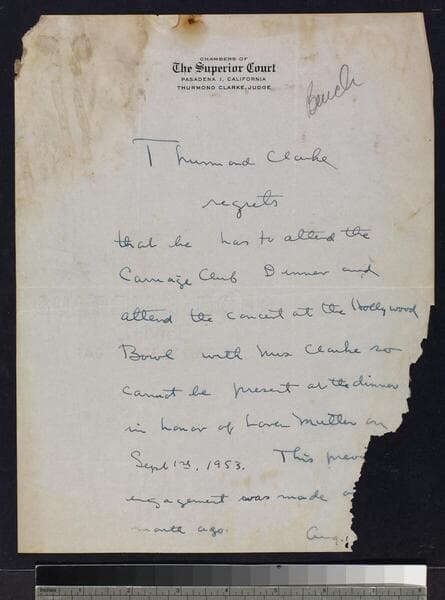 CHAMBERS OF
The Superior Court
PASADENA 1, CALIFORNIA
THURMOND CLARKE, JUDGE
Bench
Thurmond Clarke
regrets
that he has to attend the
Carriage Club Dinner and
attend the concert at the Hollywood
Bowl with Mrs Clarke so
cannot be present at the dinner
in honor of Loren Miller on
Sept 1st, 1953. This previ
engagement was made
month ago.
Aug.